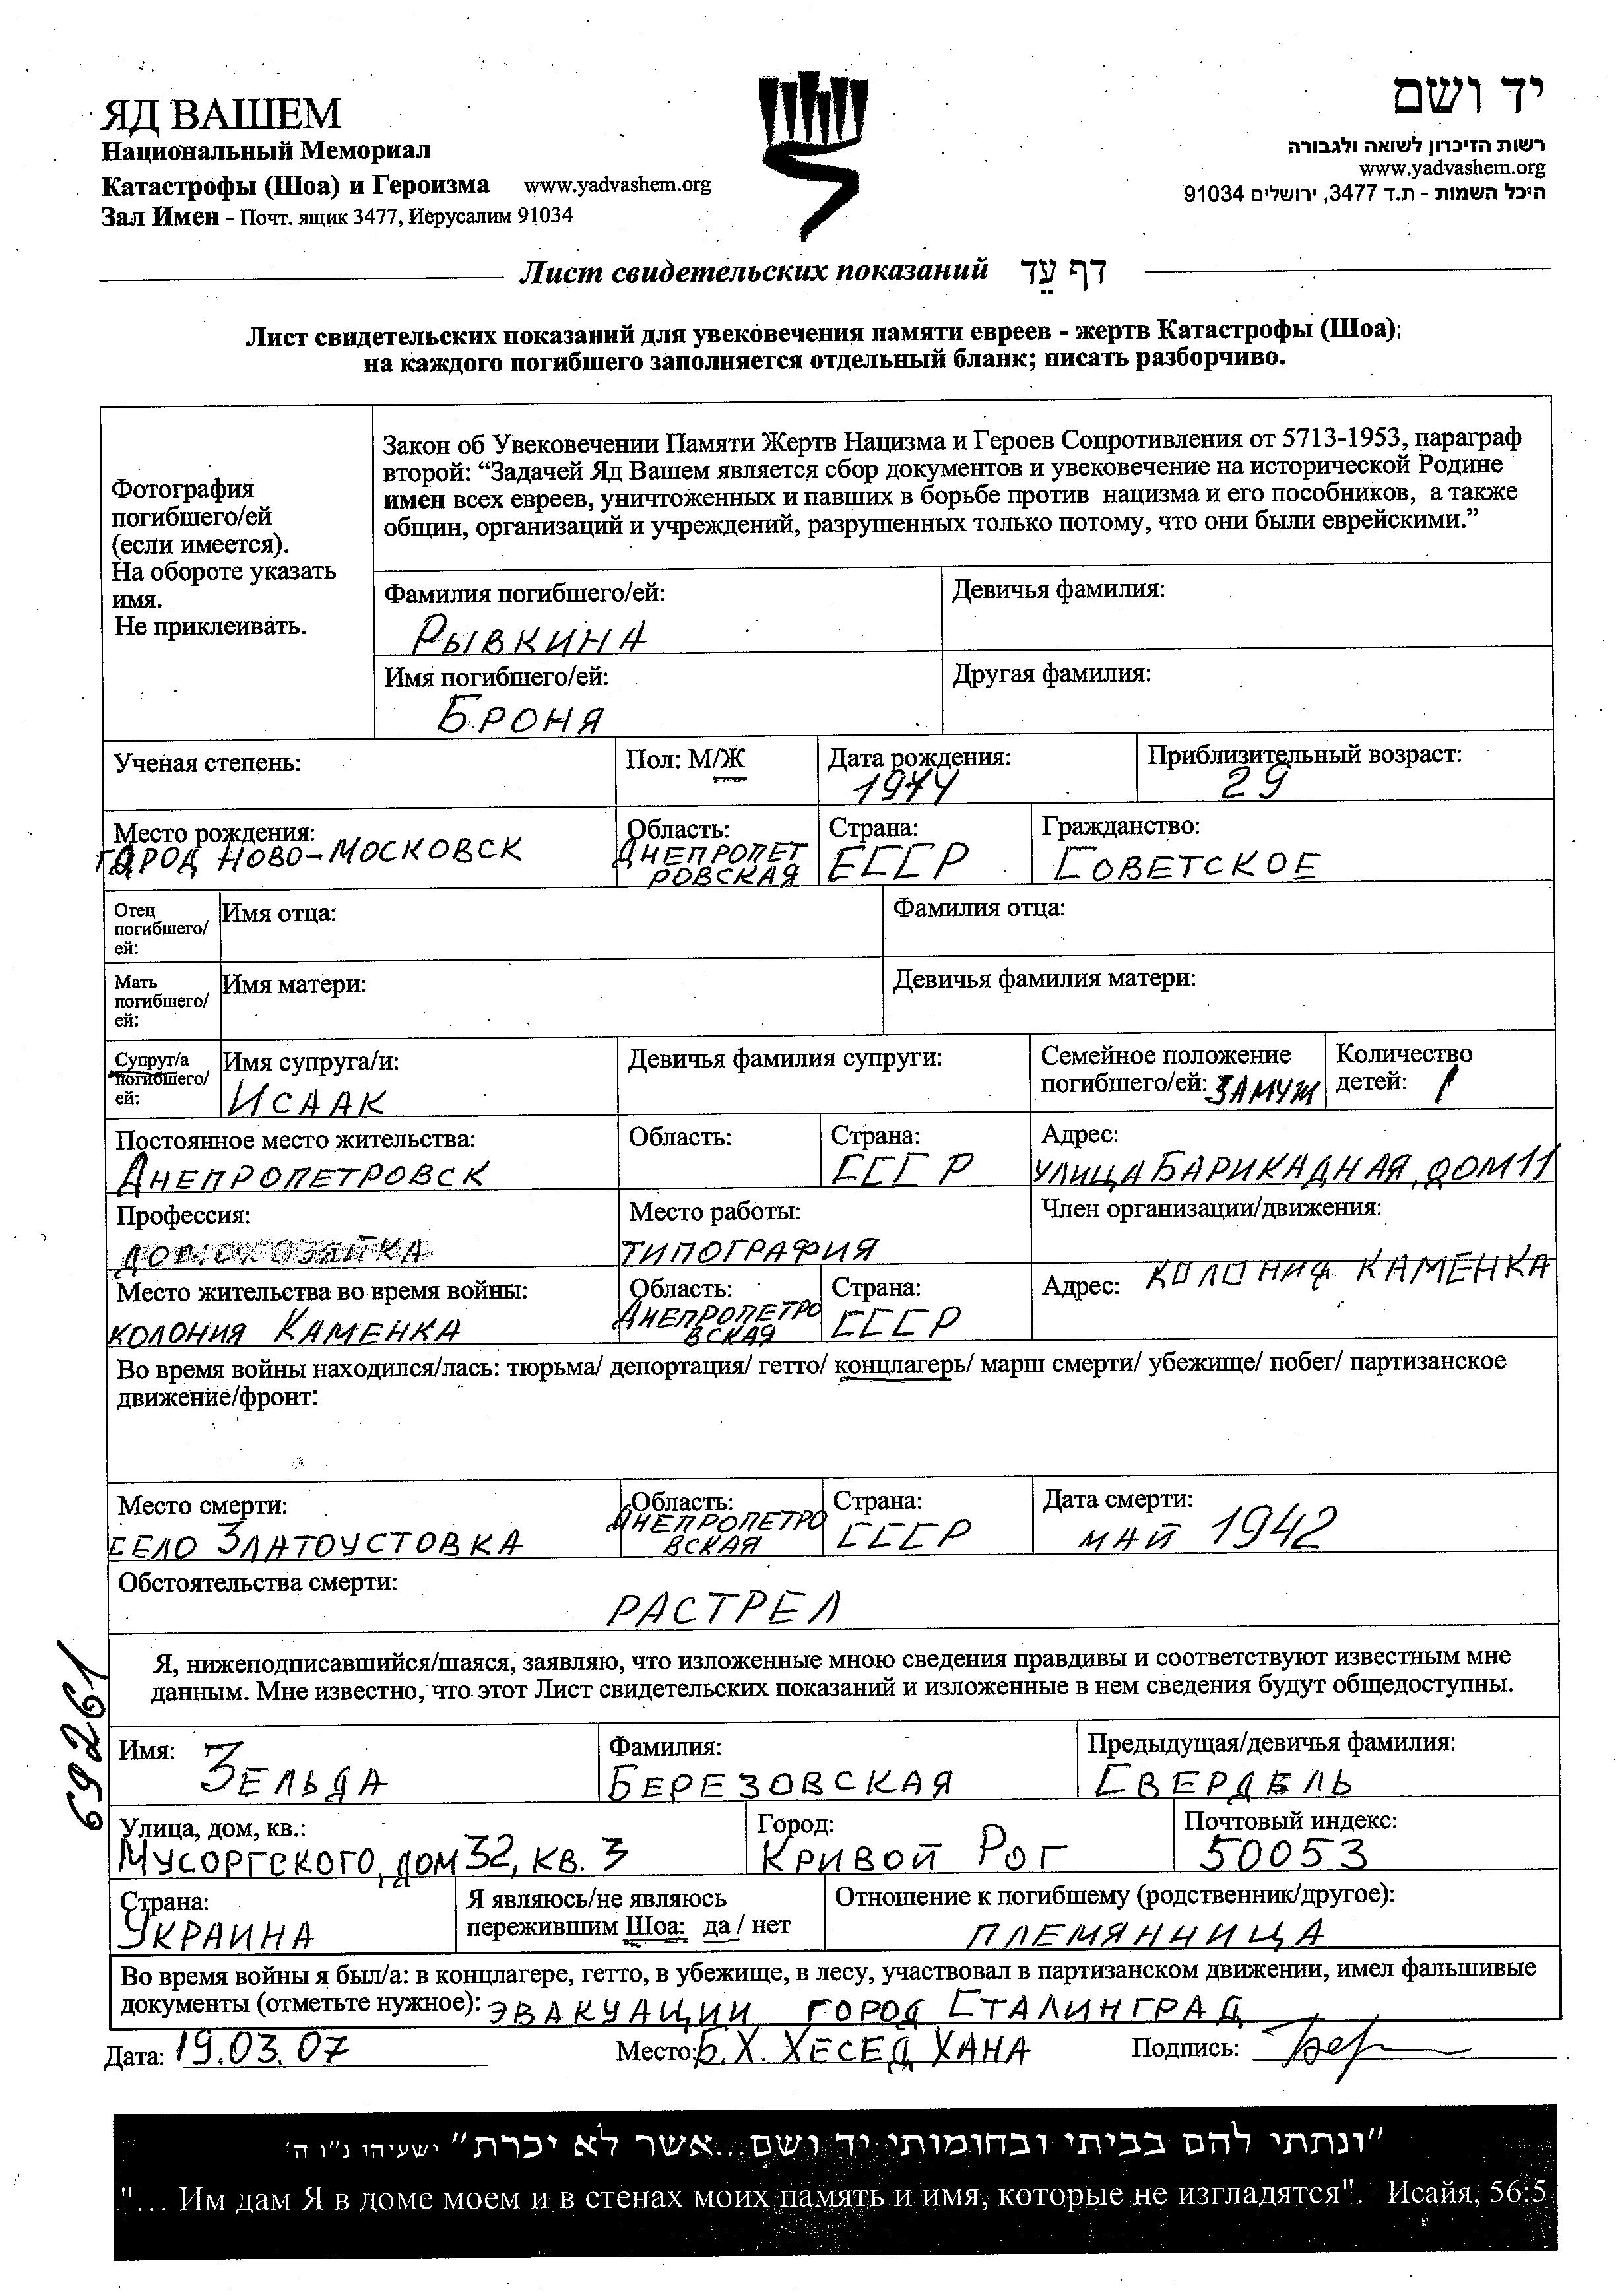 ЯД ВАШЕМ
Национальный Мемориал
Катастрофы (Шоа) и Героизма www.yadvashem.org
Зал Имен - Почт. ящик 3477, Иерусалим 91034
יד ושם
רשות הזיכרון לשואה ולגבורה
www.yadvashem.org
היכל השמות - ת.ד 3477, ירושלים 91034
Лист свидетельских показаний דף עֵד
Лист свидетельских показаний для увековечения памяти евреев - жертв Катастрофы (Шоа);
на каждого погибшего заполняется отдельный бланк; писать разборчиво.
Фотография
погибшего/ей
(если имеется).
На обороте указать
имя.
Не приклеивать.
Закон об Увековечении Памяти Жертв Нацизма и Героев Сопротивления от 5713-1953, параграф
второй: “Задачей Яд Вашем является сбор документов и увековечение на исторической Родине
имен всех евреев, уничтоженных и павших в борьбе против нацизма и его пособников, а также
общин, организаций и учреждений, разрушенных только потому, что они были еврейскими.”
Фамилия погибшего/ей: Девичья фамилия:
РЫВКИНА
Имя погибшего/ей: Другая фамилия:
БРОНЯ
Ученая степень: Пол: М/Ж Дата рождения: Приблизительный возраст:
29
Место рождения: Область: Страна: Гражданство:
ГОРОД НОВО-МОСКОВСК ДНЕПРОПЕТ СССР СОВЕТСКОЕ
РОВСКАЯ
Отец
погибшего/
ей:
Имя отца: Фамилия отца:
Мать
погибшего/
ей:
Имя матери: Девичья фамилия матери:
Супруг/а
погибшего/
ей:
Имя супруга/и: Девичья фамилия супруги: Семейное положение Количество
погибшего/ей: ЗАМУЖ детей: 1
ИСААК
Постоянное место жительства: Область: Страна: Адрес:
ДНЕПРОПЕТРОВСК СССР УЛИЦА БАРИКАДНАЯ, ДОМ 11
Профессия: Место работы: Член организации/движения:
ДОМОХОЗЯЙКА ТИПОГРАФИЯ
Место жительства во время войны: Область: Страна: Адрес: КОЛОНИЯ КАМЕНКА
КОЛОНИЯ КАМЕНКА ДНЕПРОПЕТРО СССР
ВСКАЯ
Во время войны находился/лась: тюрьма/ депортация/ гетто/ концлагерь/ марш смерти/ убежище/ побег/ партизанское
движение/фронт:
Место смерти: Область: Страна: Дата смерти:
СЕЛО ЗЛАТОУСТОВКА ДНЕПРОПЕТРО СССР МАЙ 1942
ВСКАЯ
Обстоятельства смерти:
РАСТРЕЛ
Я, нижеподписавшийся/шаяся, заявляю, что изложенные мною сведения правдивы и соответствуют известным мне
данным. Мне известно, что этот Лист свидетельских показаний и изложенные в нем сведения будут общедоступны.
69261
Имя: ЗЕЛЬДА Фамилия: Предыдущая/девичья фамилия:
БЕРЕЗОВСКАЯ СВЕРДЕЛЬ
Улица, дом, кв.: Город: Почтовый индекс:
МУСОРГСКОГО, ДОМ 32, КВ. 3 КРИВОЙ РОГ 50053
Страна: Я являюсь/не являюсь Отношение к погибшему (родственник/другое):
УКРАИНА пережившим Шоа: да / нет ПЛЕМЯННИЦА
Во время войны я был/а: в концлагере, гетто, в убежище, в лесу, участвовал в партизанском движении, имел фальшивые
документы (отметьте нужное): ЭВАКУАЦИИ ГОРОД СТАЛИНГРАД
Дата: 19.03.07 Место: Б.Х. ХЕСЕД ХАНА Подпись:
"ונתתי להם בביתי ובחומותי יד ושם...אשר לא יכרת" ישעיהו נ"ו ה'
"... Им дам Я в доме моем и в стенах моих память и имя, которые не изгладятся". Исайя, 56:5